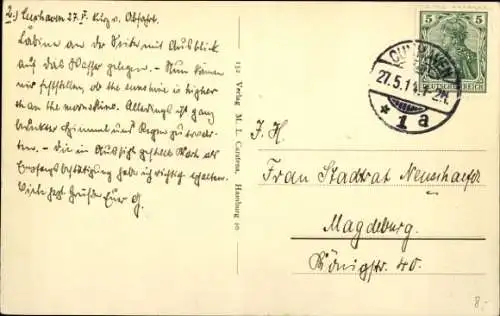 2.) Cuxhaven 27. V. Kurz v. Abfahrt.
Kabine an der Seite mit Ausblick
auf das Wasser gelegen. – Nun kann
wir feststellen, ob the sunshine is higher
than the moonshine. Allerdings ist ganz
bedeckter Himmel und Regen zu erwar-
ten. – Die in Aussicht gestellte Karte als
Empfangsbestätigung habe ich richtig erhalten.
Viele herzl. Grüße Euer G.
132 Verlag M. L. Carstens, Hamburg 30
5 5
DEUTSCHES REICH
CUXHAVEN
27.5.1
* 1 a
I. H.
Frau Stadtrat Neuschaefer
Magdeburg.
Königstr. 40.
8,-